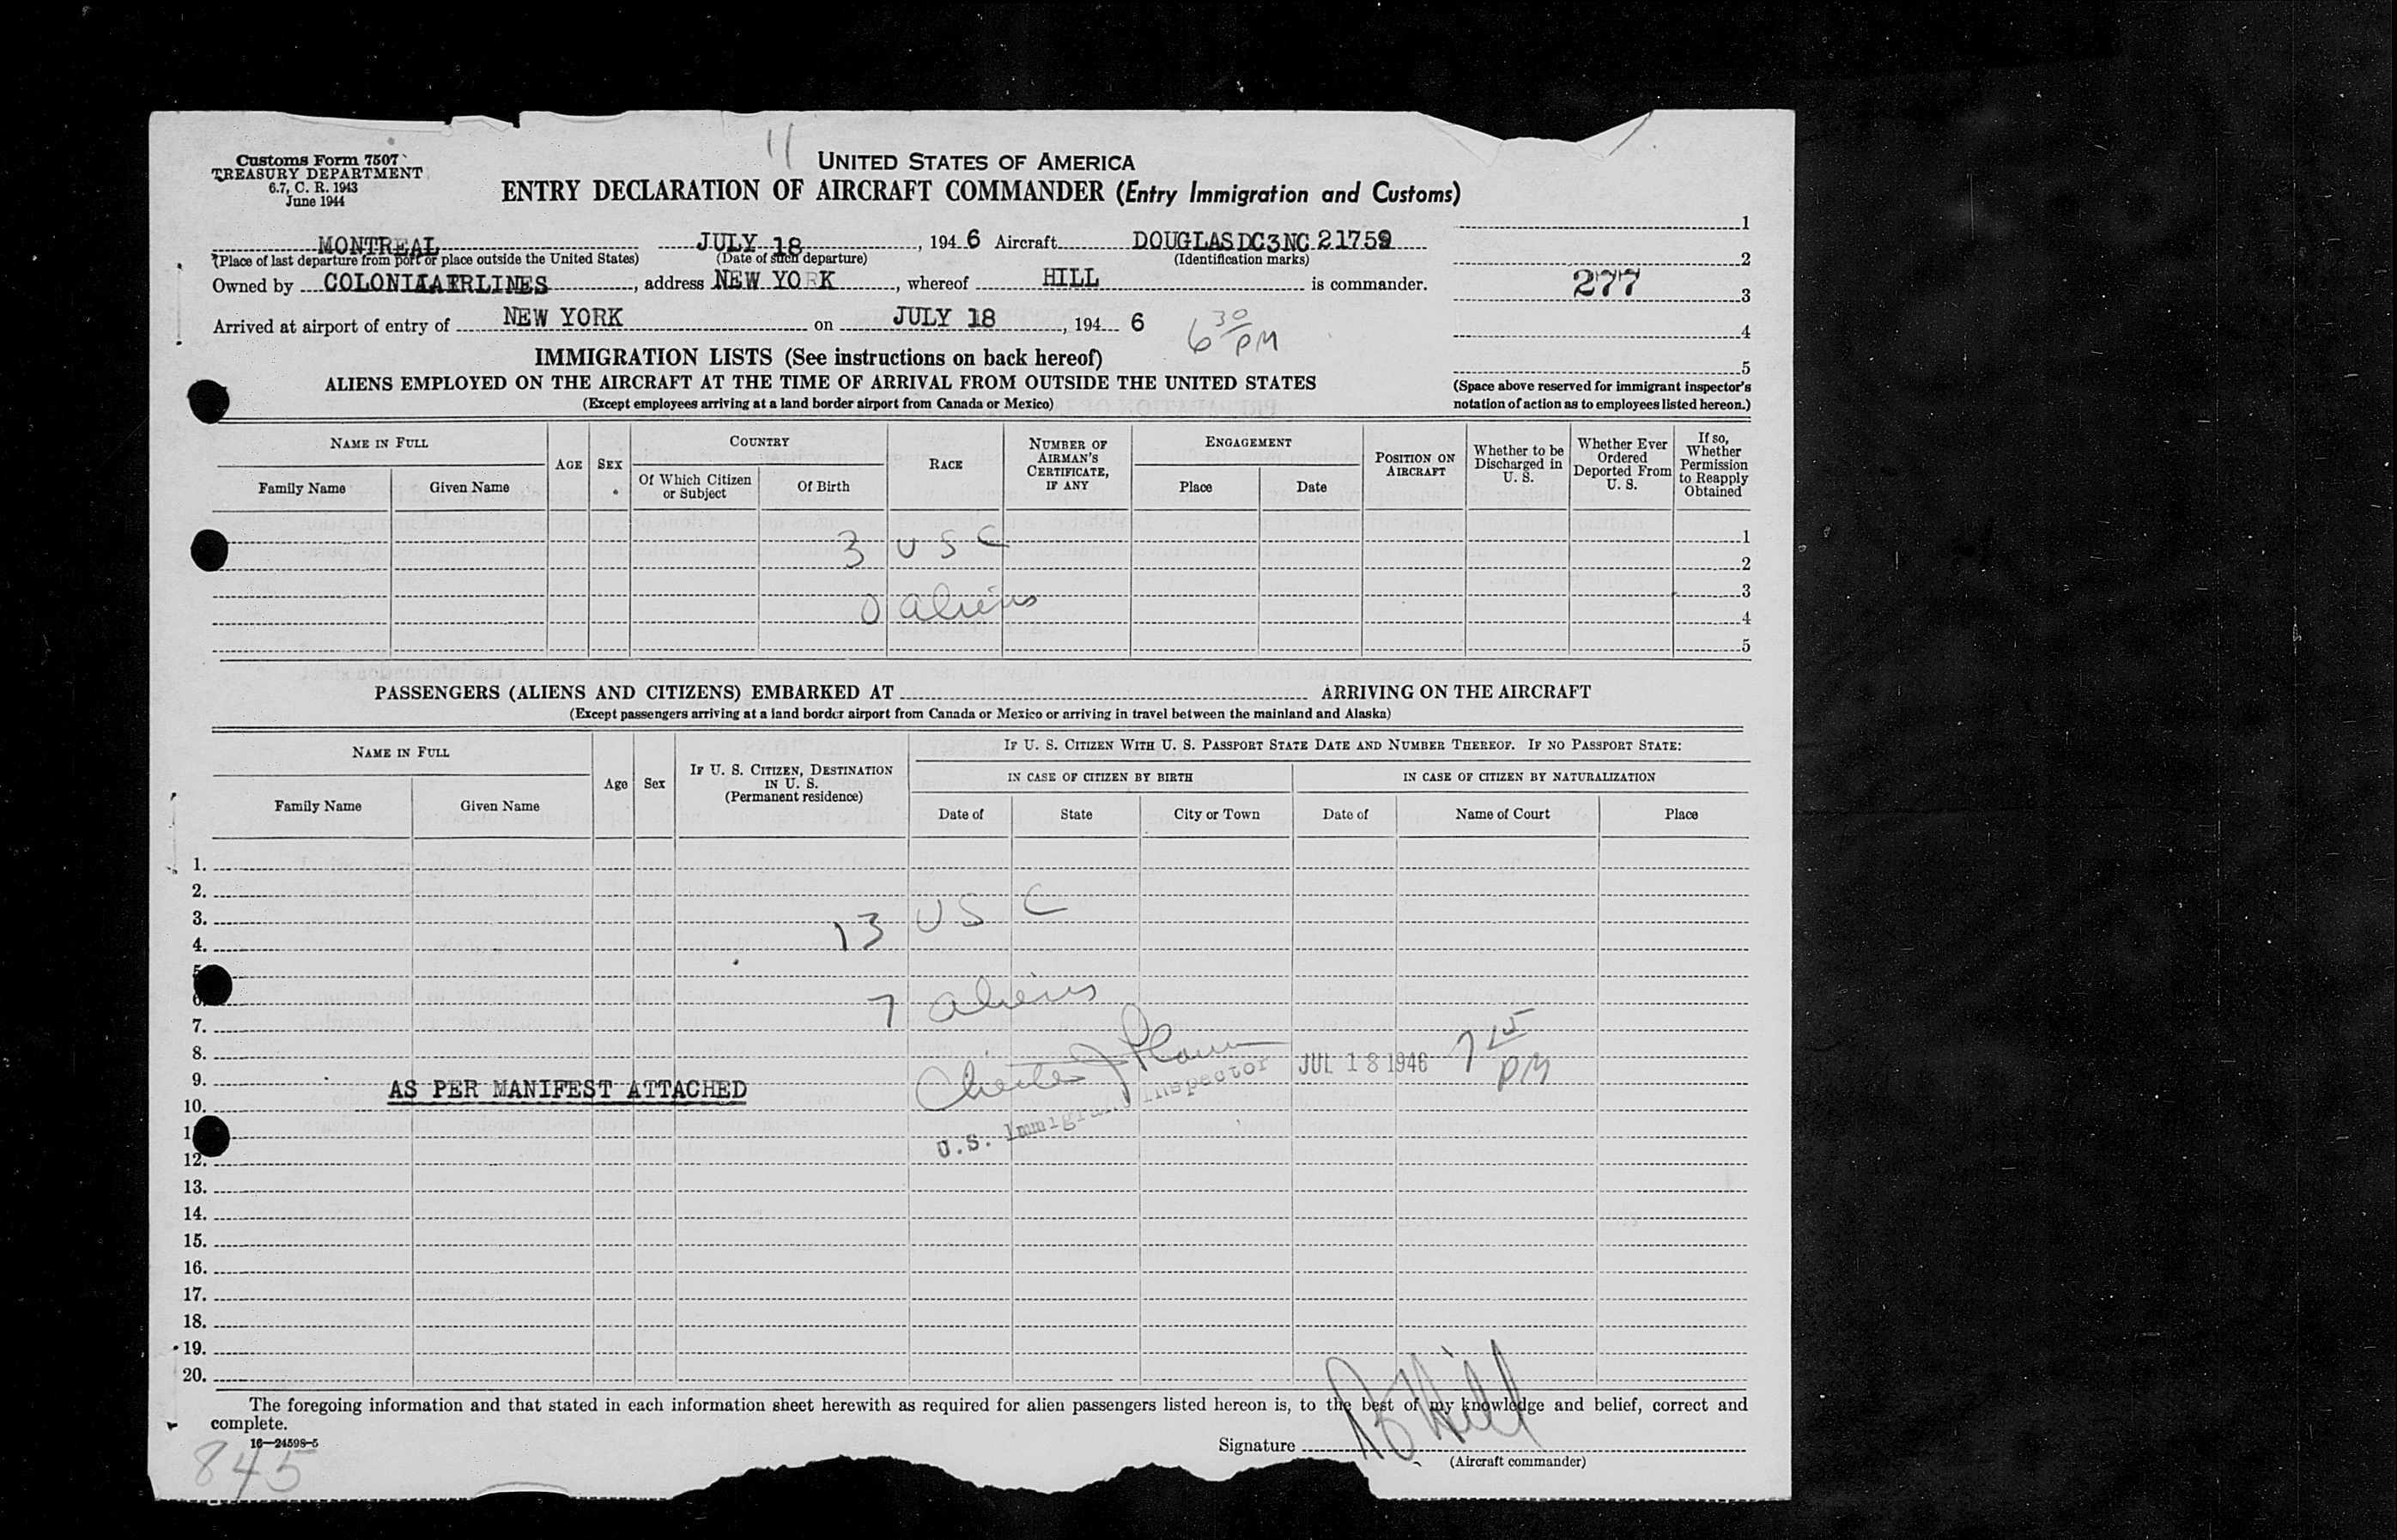 11
Customs Form 7507
TREASURY DEPARTMENT
6.7, C. R. 1943
June 1944
UNITED STATES OF AMERICA
ENTRY DECLARATION OF AIRCRAFT COMMANDER (Entry Immigration and Customs)
MONTREAL JULY 18, 1946 Aircraft DOUGLAS DC3 NC 21759
(Place of last departure from port or place outside the United States) (Date of such departure) (Identification marks)
Owned by COLONIAL AIRLINES, address NEW YORK, whereof HILL is commander.
Arrived at airport of entry of NEW YORK on JULY 18, 1946 6 30 PM
1
2
277 3
4
5
(Space above reserved for immigrant inspector's
notation of action as to employees listed hereon.)
IMMIGRATION LISTS (See instructions on back hereof)
ALIENS EMPLOYED ON THE AIRCRAFT AT THE TIME OF ARRIVAL FROM OUTSIDE THE UNITED STATES
(Except employees arriving at a land border airport from Canada or Mexico)
NAME IN FULL
Family Name Given Name
AGE SEX
COUNTRY
Of Which Citizen or Subject Of Birth
RACE
NUMBER OF AIRMAN'S CERTIFICATE, IF ANY
ENGAGEMENT
Place Date
POSITION ON AIRCRAFT
Whether to be Discharged in U. S.
Whether Ever Ordered Deported From U. S.
If so, Whether Permission to Reapply Obtained
1
3 USC 2
3
0 aliens 4
5
PASSENGERS (ALIENS AND CITIZENS) EMBARKED AT ARRIVING ON THE AIRCRAFT
(Except passengers arriving at a land border airport from Canada or Mexico or arriving in travel between the mainland and Alaska)
NAME IN FULL
Family Name Given Name
Age Sex
IF U. S. CITIZEN, DESTINATION IN U. S.
(Permanent residence)
IF U. S. CITIZEN WITH U. S. PASSPORT STATE DATE AND NUMBER THEREOF. IF NO PASSPORT STATE:
IN CASE OF CITIZEN BY BIRTH IN CASE OF CITIZEN BY NATURALIZATION
Date of State City or Town Date of Name of Court Place
1.
2.
3. 13 USC
4.
5
6. 7 aliens
7.
8. JUL 18 1946 7 15 PM
9. AS PER MANIFEST ATTACHED
10. U.S. Immigrant Inspector
1
12.
13.
14.
15.
16.
17.
18.
19.
20.
The foregoing information and that stated in each information sheet herewith as required for alien passengers listed hereon is, to the best of my knowledge and belief, correct and
complete.
16—24598-5
Signature Hill
(Aircraft commander)
845